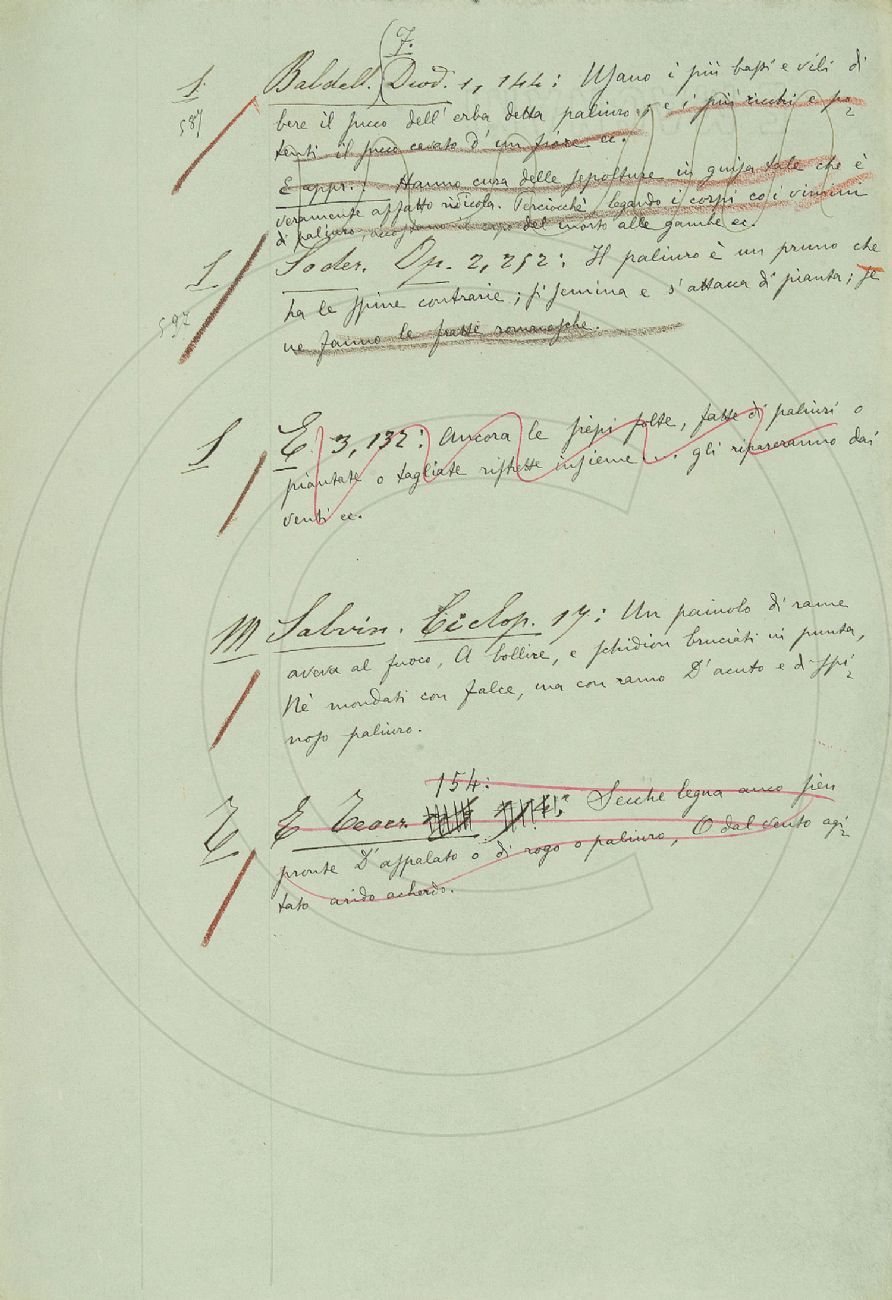 F.
1 Baldell. Diod. 1, 144: Usano i più bassi e vili di
587
bere il succo dell' erba detta paliuro, e i più ricchi e po-
tenti il succo cavato d' un fiore ec.
E appr.: Hanno cura delle sepolture in guisa tale che è
veramente affatto ridicola. Perciocchè legando i corpi co i vimini
di paliuro, accostano il capo del morto alle gambe ec.
1 Soder. Op. 2, 252: Il paliuro è un pruno che
ha le spine contrarie; si semina e s' attacca di pianta; se
597
ne fanno le fratte romanesche.
1 E 3, 132: Ancora le siepi folte, fatte di paliuri o
piantate o tagliate ristrette insieme ... gli ripareranno dai
venti ec.
M Salvin. Ciclop. 17: Un paiuolo di rame
aveva al fuoco, A bollire, e schidion bruciati in punta,
Nè mondati con falce, ma con ramo D' acuto e di spi-
noso paliuro.
154:
T E Teocr. Secche legna anco sien
pronte D' aspalato o di rogo o paliuro, O dal vento agi-
tato arido acherdo.